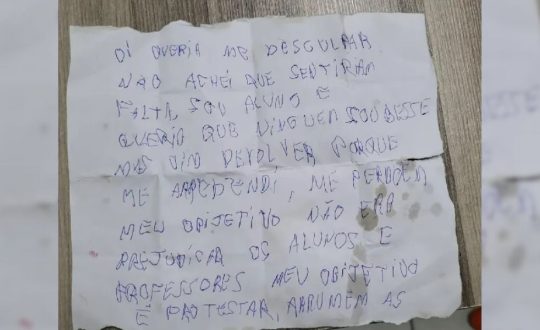 OI QUERIA ME DESCULPAR
NÃO ACHEI QUE SENTIRAM
FALTA, SOU ALUNO E
QUERIA QUE NINGUEM SOUBESSE
MAS VIM DEVOLVER PORQUE
ME ARREPENDI, ME PERDOEM
MEU OBIJETIVO NÃO ERA
PREJUDICAR OS ALUNOS E
PROFESSORES MEU OBIJETIVO
E PROTESTAR, ARRUMEM AS